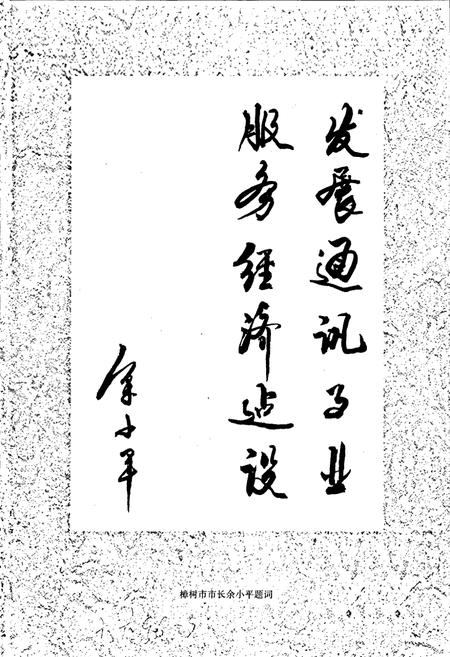 发展通讯事业
服务经济建设
余小平
樟树市市长余小平题词